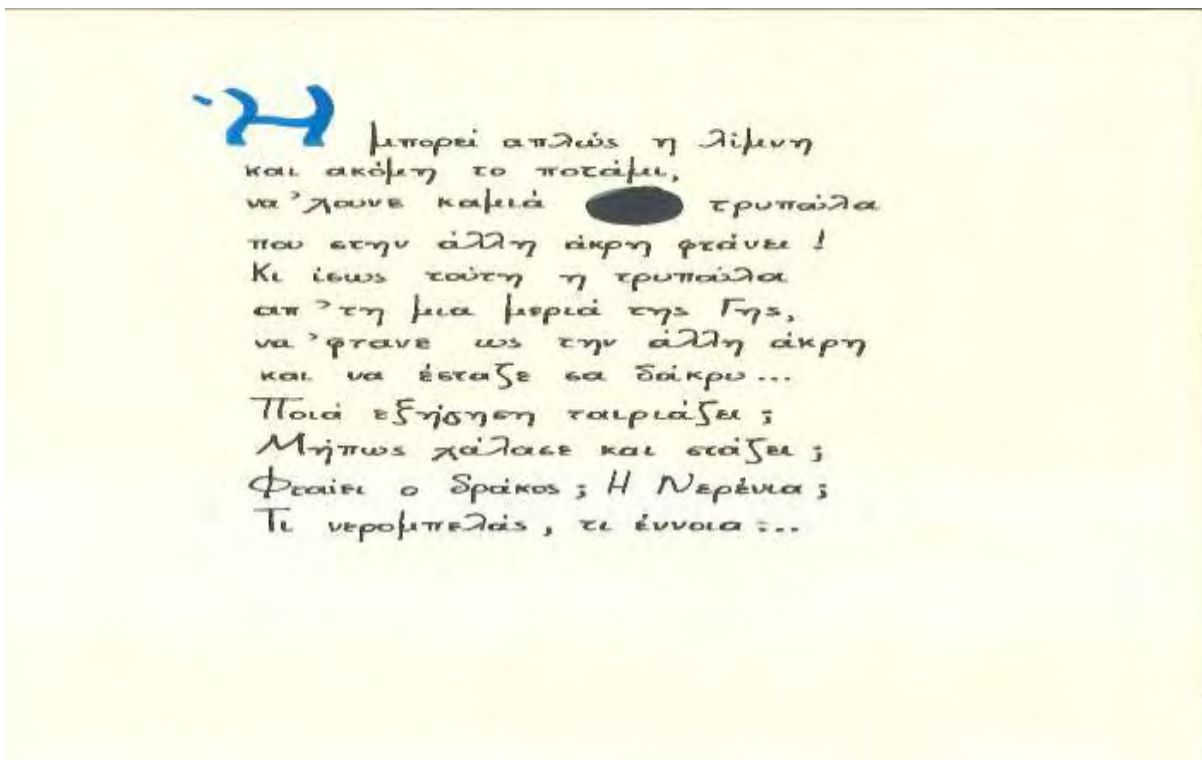 Ή μπορεί απλώς η λίμνη
και ακόμη το ποτάμι,
να 'χουνε καμιά τρυπούλα
που στην άλλη άκρη φτάνει!
Κι ίσως τούτη η τρυπούλα
απ' τη μια μεριά της Γης,
να 'φτανε ως την άλλη άκρη
και να έσταζε σα δάκρυ...
Ποιά εξήγηση ταιριάζει;
Μήπως χάλασε και στάζει;
Φταίει ο δράκος; Η Νερένια;
Τι νερομπελάς, τι έννοια...